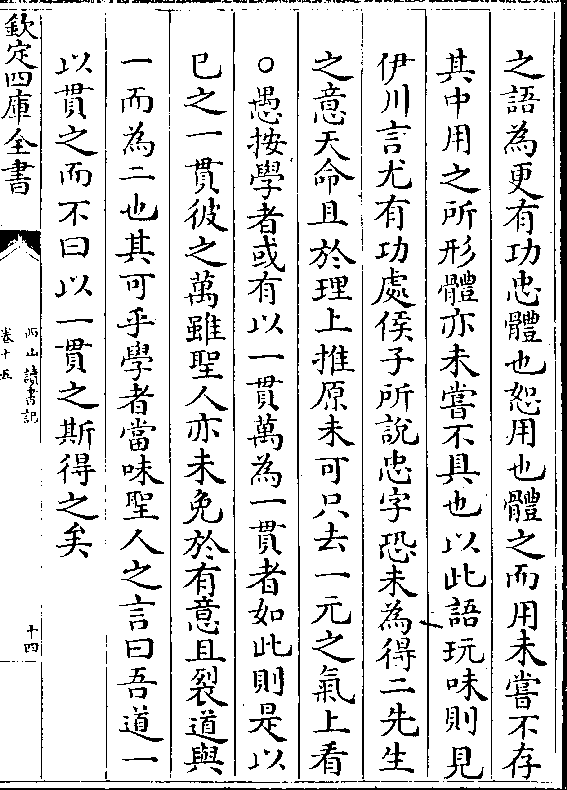 之語為更有功忠體也恕用也體之而用未嘗不存
其中用之所形體亦未嘗不具也以此語玩味則見
伊川言尤有功處侯子所說忠字恐未為得二先生
之意天命且於理上推原未可只去一元之氣上看
○愚按學者或有以一貫萬為一貫者如此則是以
已之一貫彼之萬雖聖人亦未免於有意且裂道與
一而為二也其可乎學者當味聖人之言曰吾道一
以貫之而不曰以一貫之斯得之矣
欽定四庫全書
西山讀書記
卷十五
十四